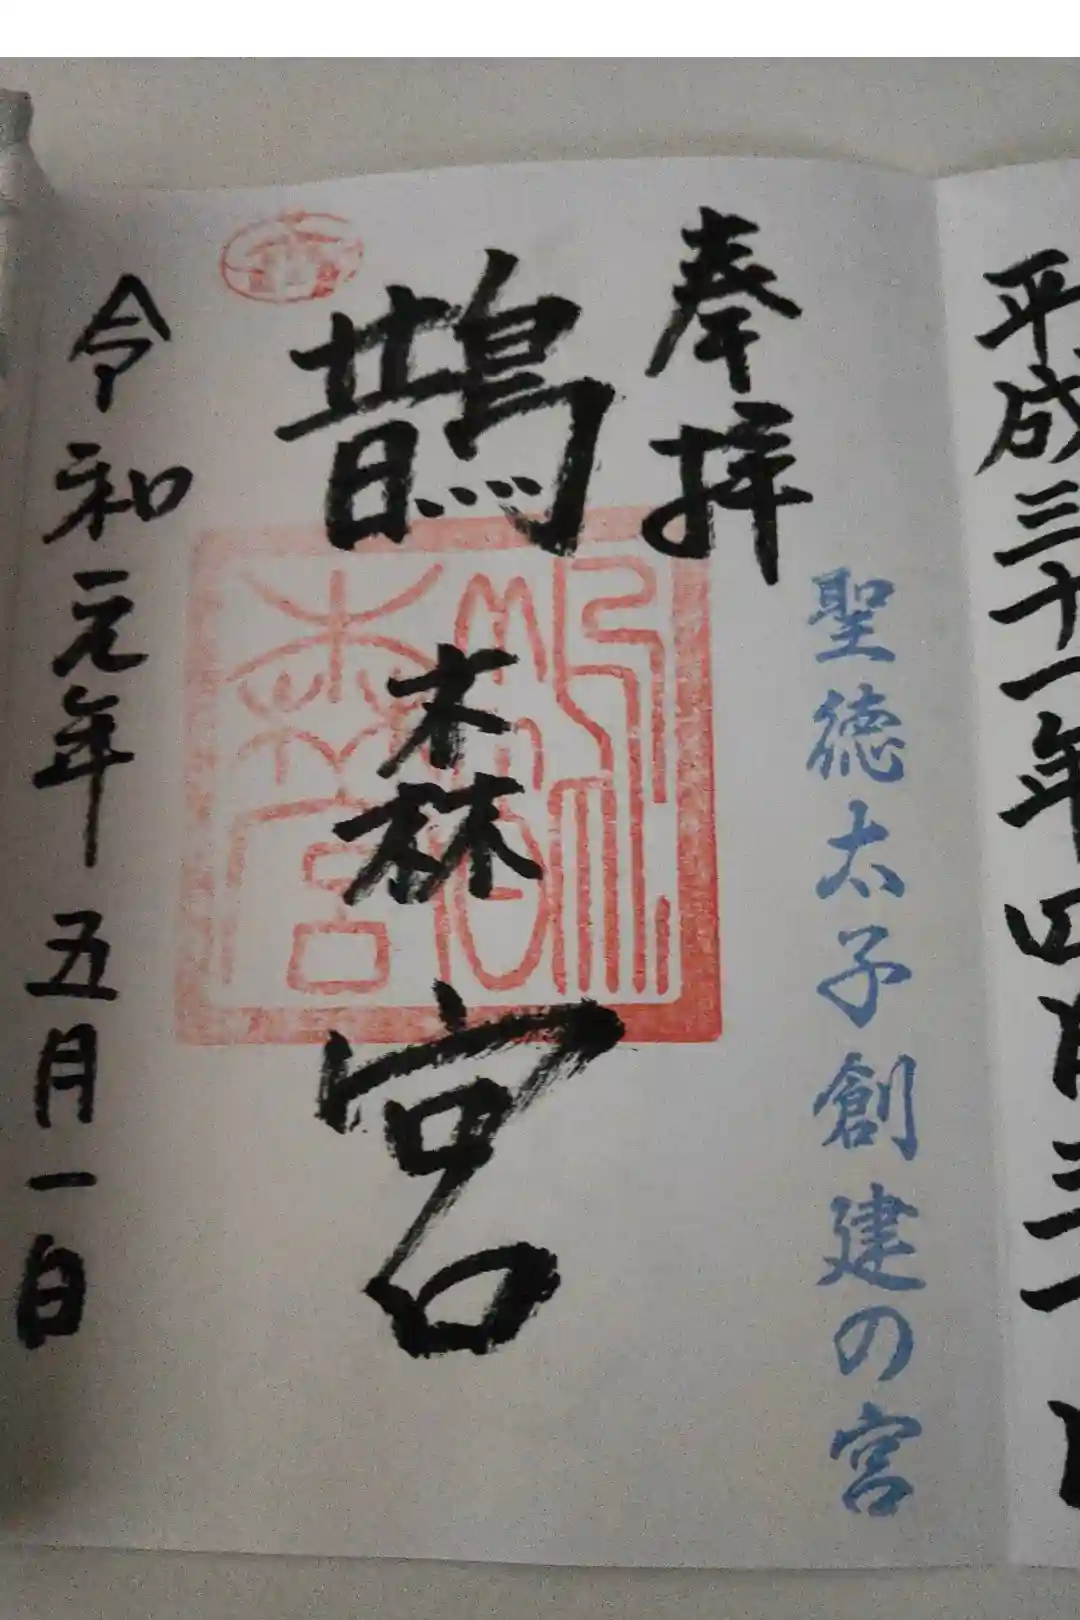 平成三十一年四月三十日
奉拝
聖徳太子創建の宮
鵲森宮
令和元年五月一日